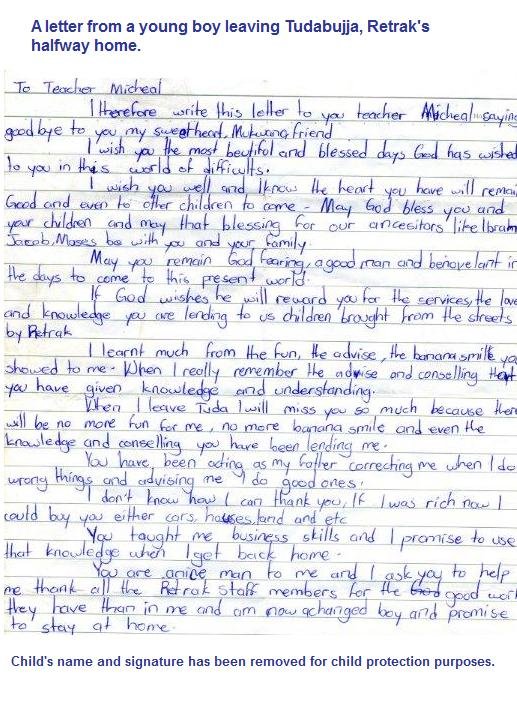 A letter from a young boy leaving Tudabujja, Retrak's
halfway home.
To Teacher Micheal
I therefore write this letter to you teacher Micheal saying
goodbye to you my sweetheart, Mukwano friend
I wish you the most beutiful and blessed days God has wished
to you in this world of difficults.
I wish you well and I know the heart you have will remai
Good and even to other children to come - May God bless you and
your children and may that blessing for our ancesitors like Ibram
Jacob, Moses be with you and your family.
May you remain God fearing, a good man and benovelant in
the days to come to this present world.
If God wishes he will reward you for the services, the love
and knowledge you are lending to us children brought from the streets
by Retrak
I learnt much from the fun, the advise, the banana smile you
showed to me. When I really remember the advise and conselling that
you have given knowledge and understanding.
When I leave Tuda I will miss you so much because ther
will be no more fun for me, no more banana smile and even the
knowledge and conselling you have been lending me.
You have been acting as my father correcting me when I do
wrong things and advising me I do good ones.
I don't know how I can thank you, If I was rich now I
could buy you either cars, houses, land and etc
You taught me business skills and I promise to use
that knowledge when I get back home.
You are a nice man to me and I ask you to help
me thank all the Retrak staff members for the God good work
they have than in me and am now a changed boy and promise
to stay at home.
Child's name and signature has been removed for child protection purposes.